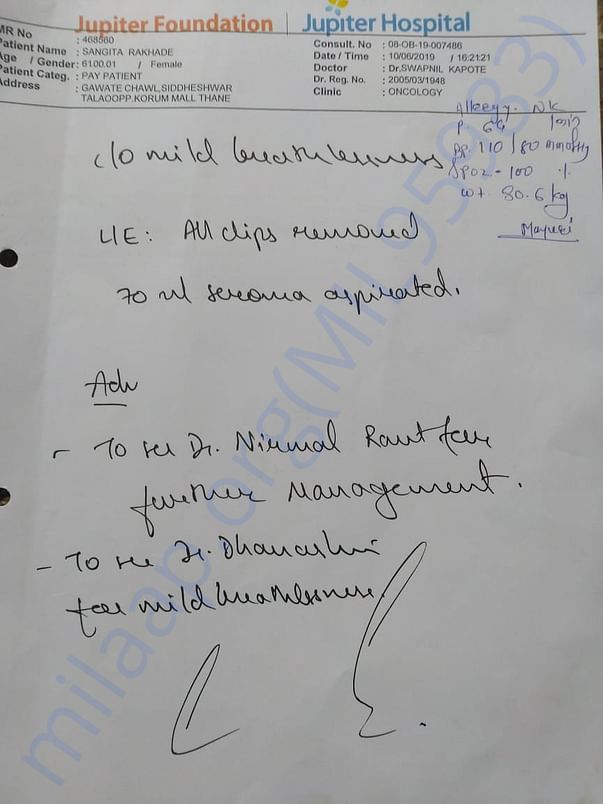 Jupiter Foundation | Jupiter Hospital
MR No : 468560
Patient Name : SANGITA RAKHADE
Age / Gender : 61.00.01 / Female
Patient Categ. : PAY PATIENT
Address : GAWATE CHAWL,SIDDHESHWAR
TALAOOPP.KORUM MALL THANE
Consult. No : 08-OB-19-007486
Date / Time : 10/06/2019 / 16:21:21
Doctor : Dr.SWAPNIL KAPOTE
Dr. Reg. No. : 2005/03/1948
Clinic : ONCOLOGY
Allergy. NK
P. 64 /min
BP. 110/80 mmofHg
SPO2 - 100 %
wt 80.6 kg
Mayuri
c/o mild breathlessness
L/E: All clips removed
70 ml seroma aspirated.
Adv
- To see Dr. Nirmal Raut for
further Management.
- To see Dr. Dhanashri
for mild breathlessness.
milaap.org(MIL95983)